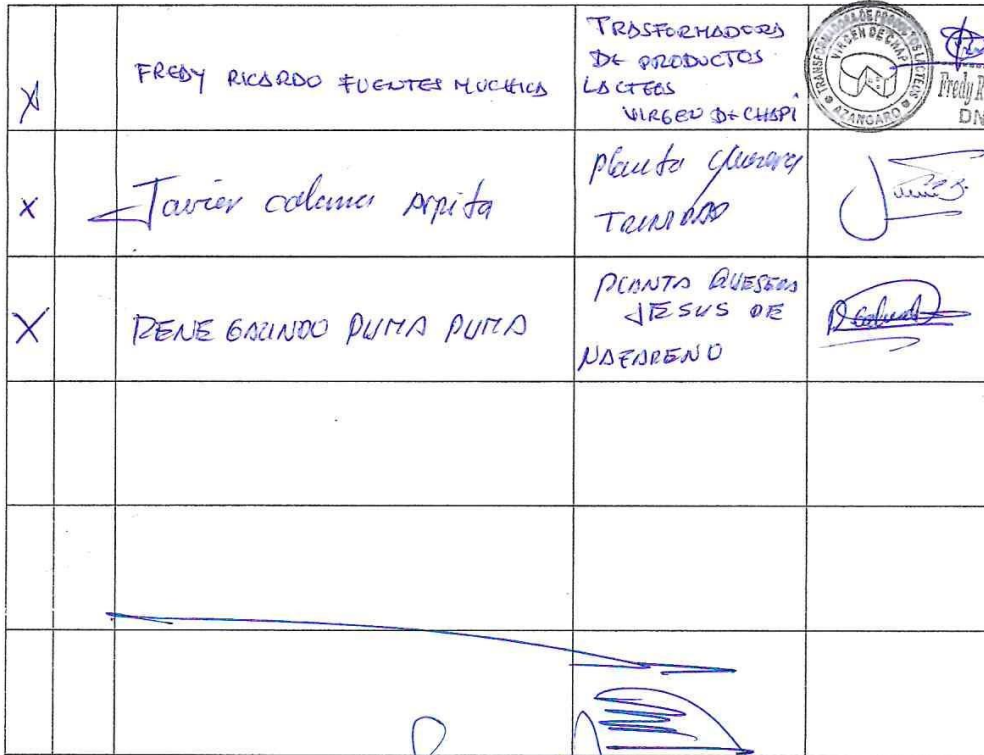 X
FREDY RICARDO FUENTES MUCHICA
TRASFORMADORA
DE PRODUCTOS
LACTEOS
VIRGEN DE CHAPI
TRANSFORMADORA DE PRODUCTOS LACTEOS
VIRGEN DE CHAPI
AZANGARO
Fredy R
DN
X
Javier colama
planta quesera
TRINIDAD
X
RENE GALINDO PUMA PUMA
PLANTA QUESERA
JESUS DE
NAZARENO